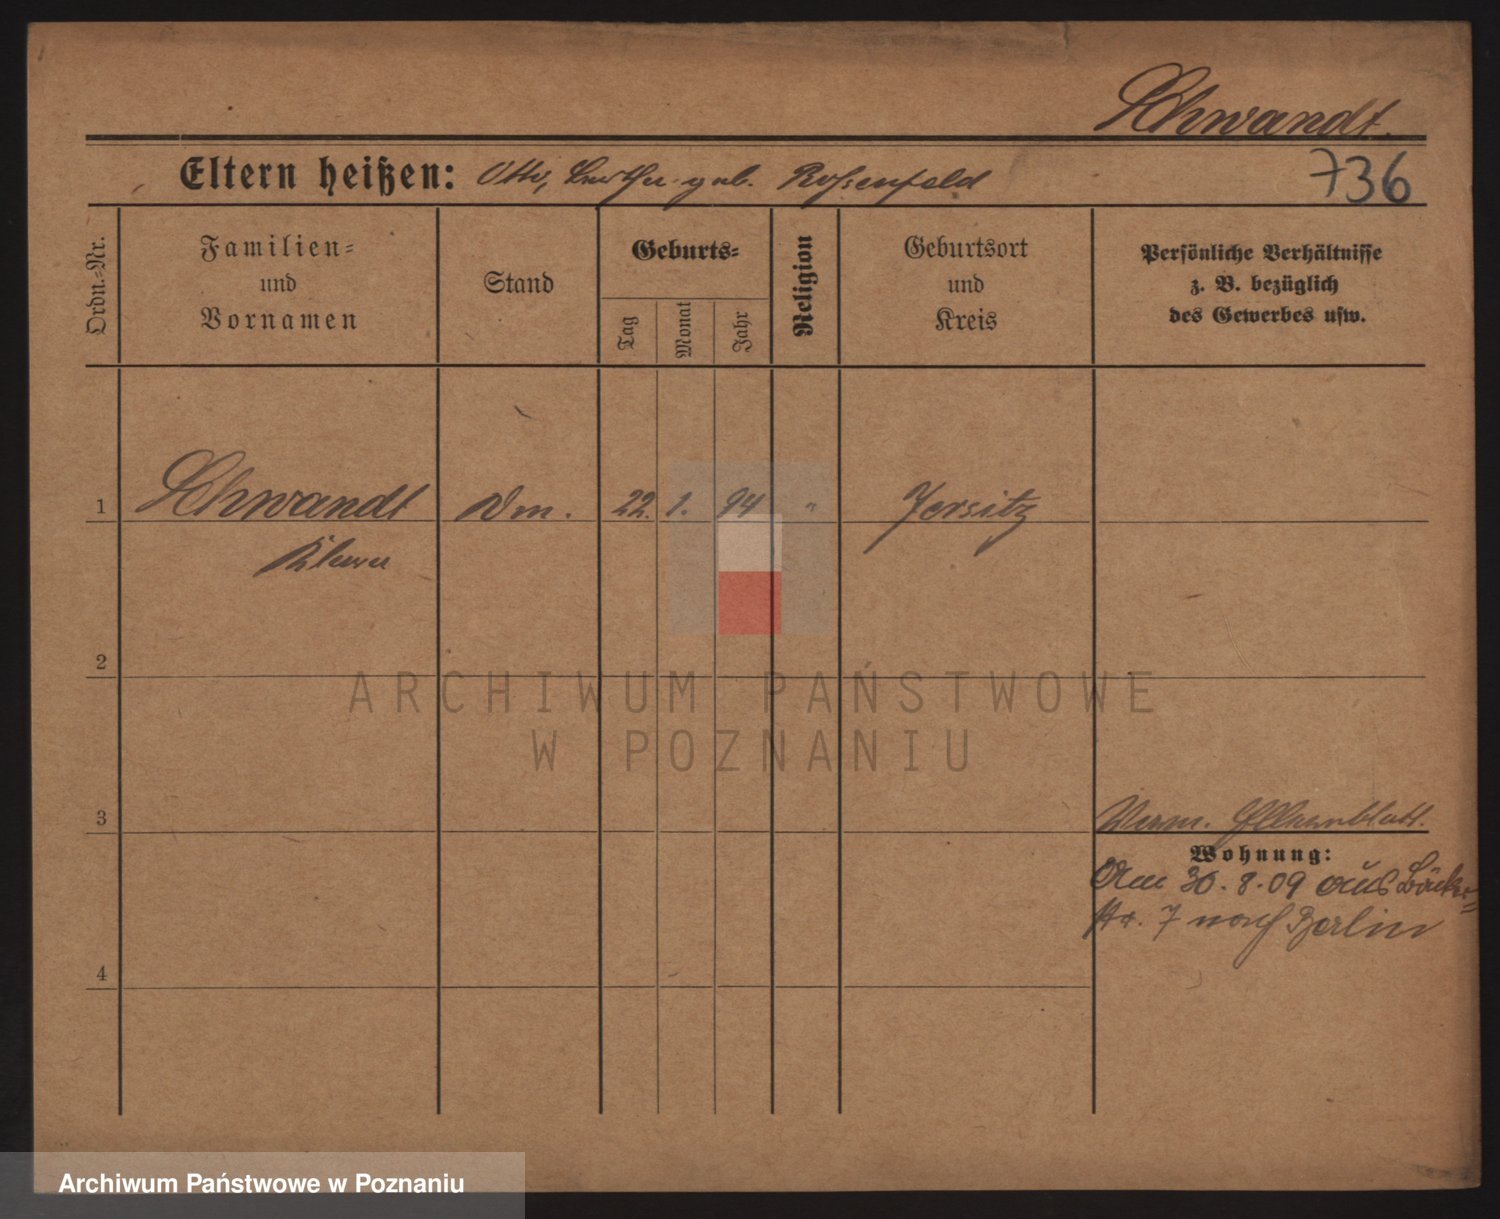 Schwandt.
Eltern heißen: Otto, Bertha geb. Rosenfeld
736
Ordn.-Nr.
Familien-
und
Vornamen
Stand
Geburts-
Tag
Monat
Jahr
Religion
Geburtsort
und
Kreis
Persönliche Verhältnisse
z. B. bezüglich
des Gewerbes usw.
1 Schwandt 22. 1. 94 " Jersitz
Klara
2
ARCHIWUM PAŃSTWOWE
W POZNANIU
3
Wohnung:
Am 30. 8. 09 aus Bäcker-
str. 7 nach Berlin
4
Archiwum Państwowe w Poznaniu